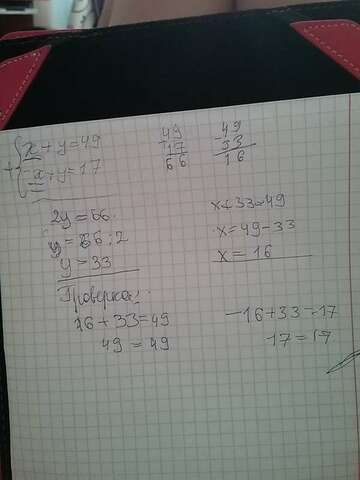 x + y = 49
+
-x + y = 17
49
+ 17
66
49
- 33
16
2y = 66
y = 66 : 2
y = 33
x + 33 = 49
x = 49 - 33
x = 16
Проверка:
16 + 33 = 49
49 = 49
-16 + 33 = 17
17 = 17